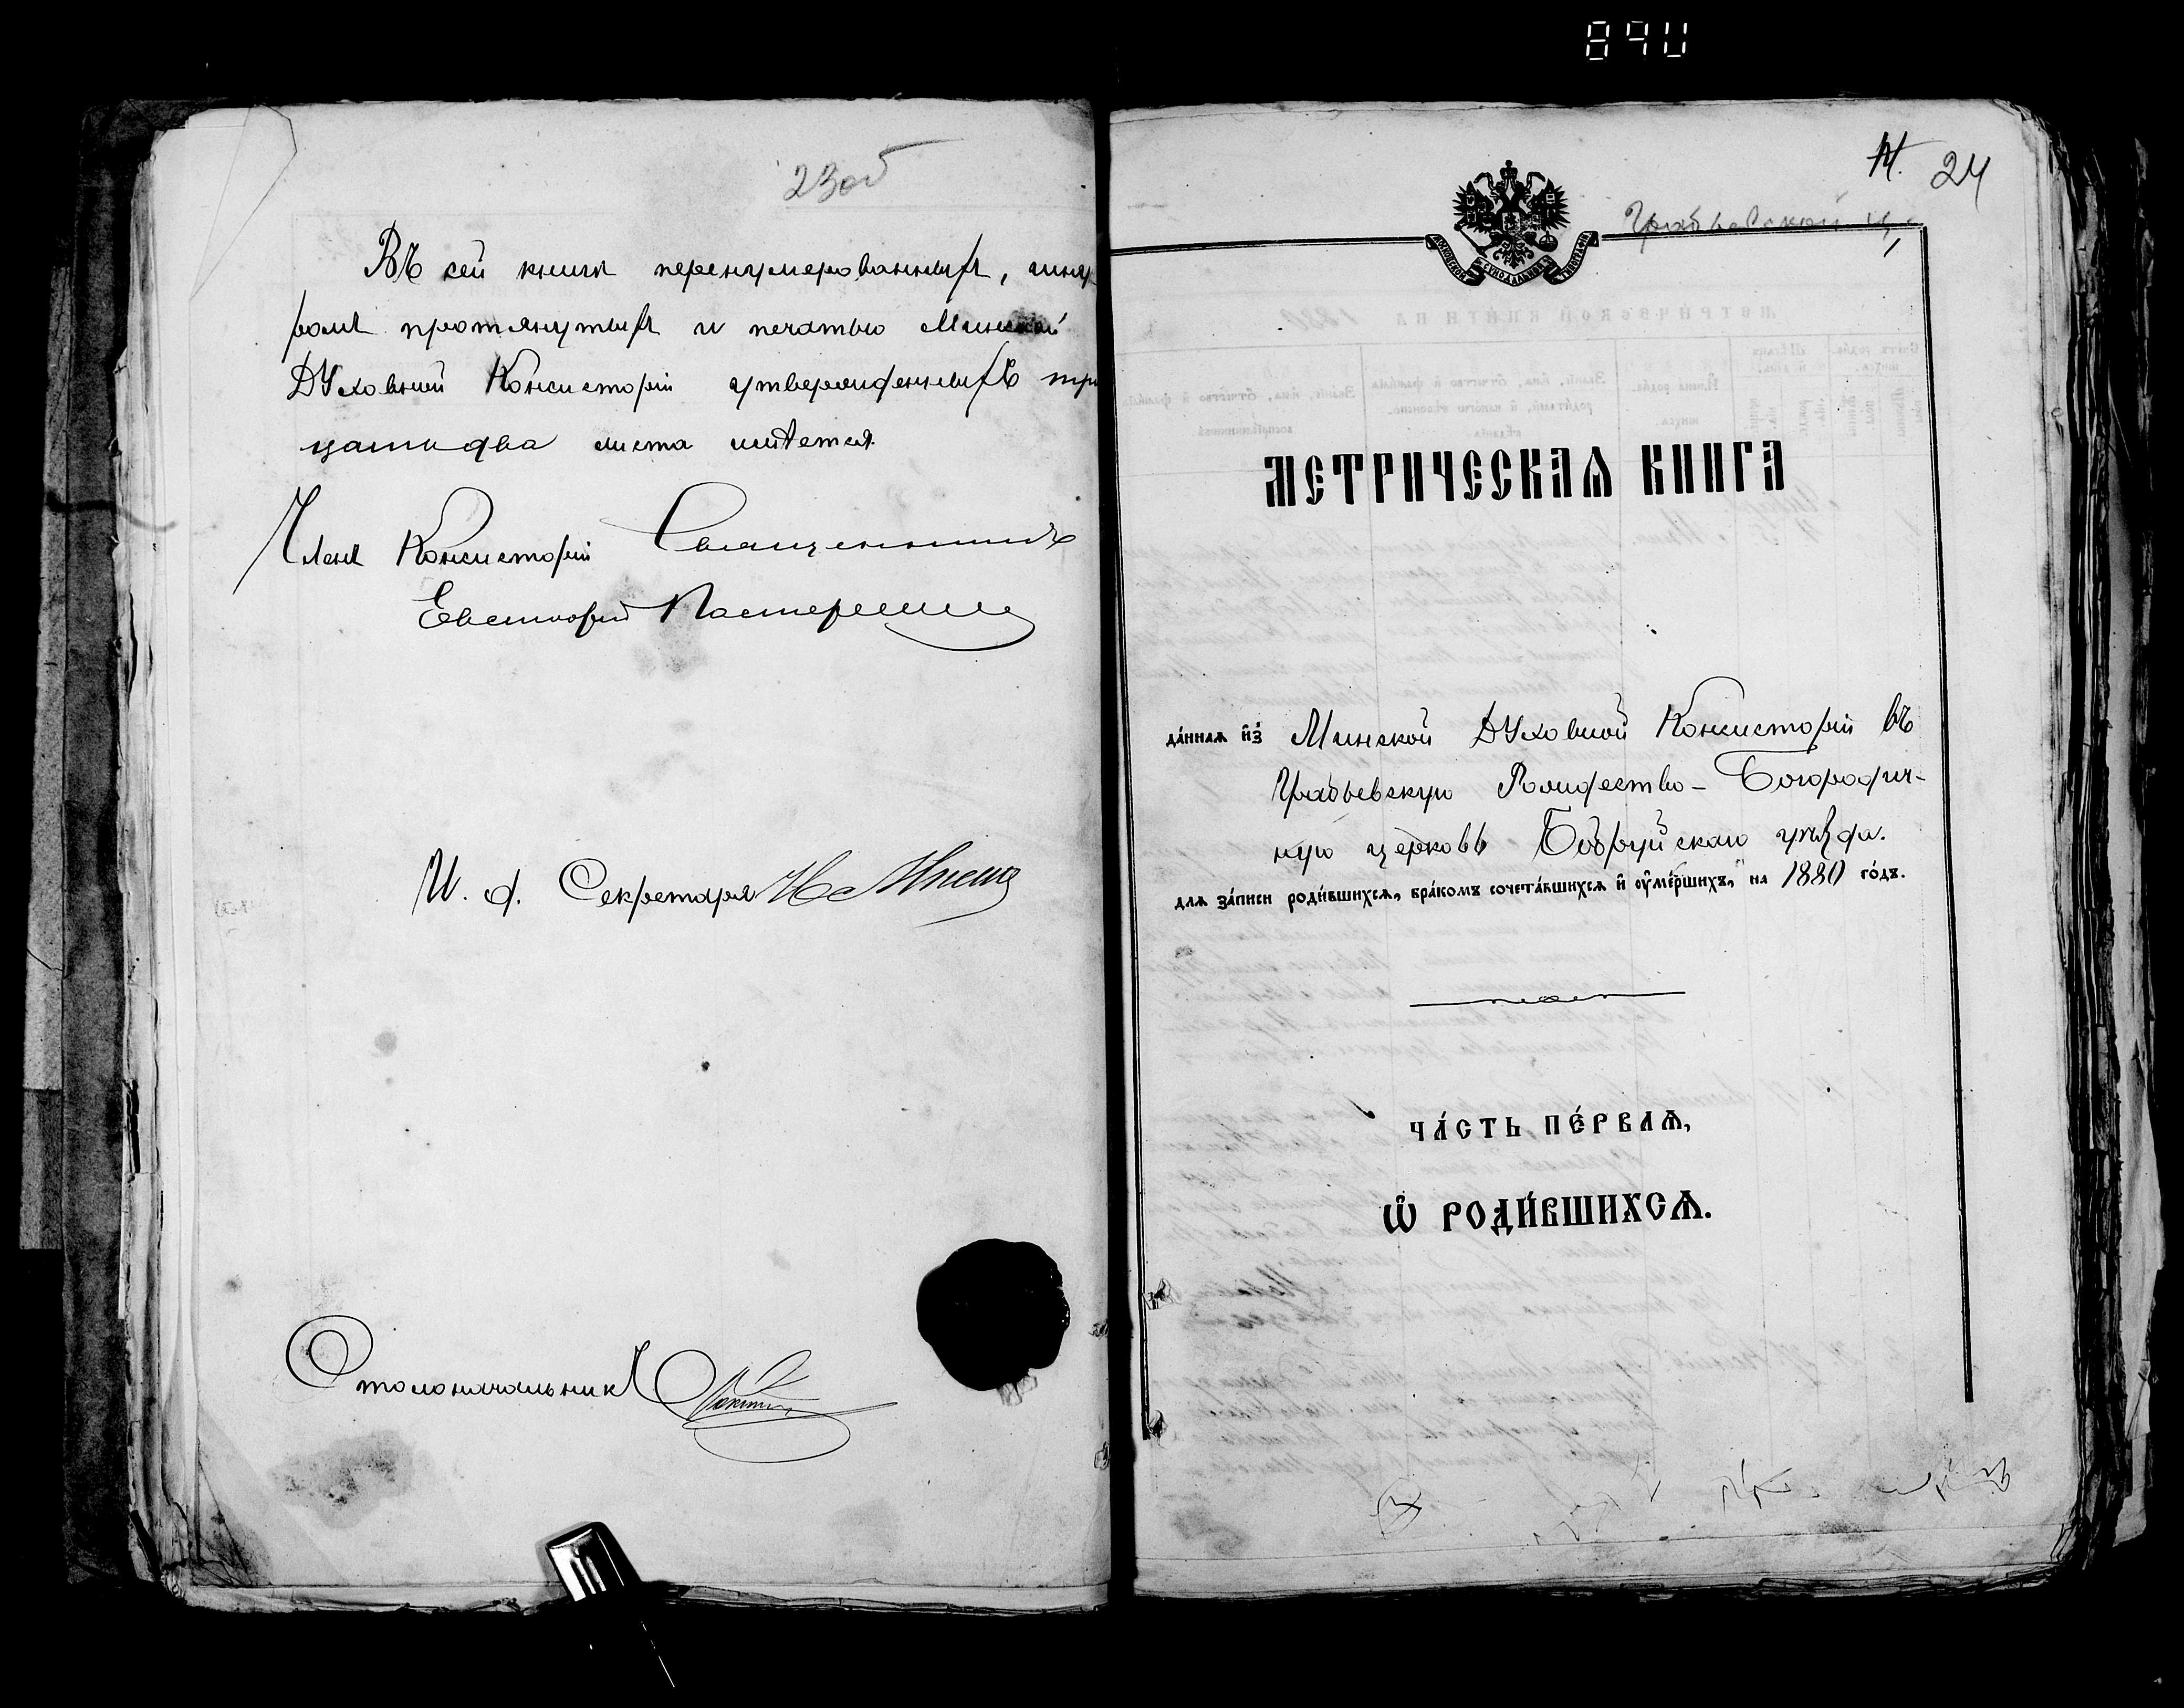 890
23об
Въ сей книгѣ перенумерованныхъ, шну
ромъ протянутыхъ и печатью Минской
Духовной Консисторіи утвержденныхъ трид
цать два листа имѣется.
Членъ Консисторіи Священникъ
Евстафій
И. д. Секретаря
Столоначальникъ
24
Грабьевской ц.
МОСКОВСКОЙ СѴНОДАЛЬНОЙ ТИПОГРАФІИ
МЕТРИЧЕСКАѦ КНИГА
да́ннаѧ и҆з̾ Минской Духовной Консисторіи въ
Грабьевскую Рождество-Богородич-
ную церковь Бобруйскаго уѣзда.
длѧ за́писи роди́вшихсѧ, бра́комъ сочета́вшихсѧ и҆ ᲂу҆ме́ршихъ, на 1880 го́дъ.
ЧА́СТЬ ПЕ́РВАѦ,
Ѽ РОДИ́ВШИХСѦ.